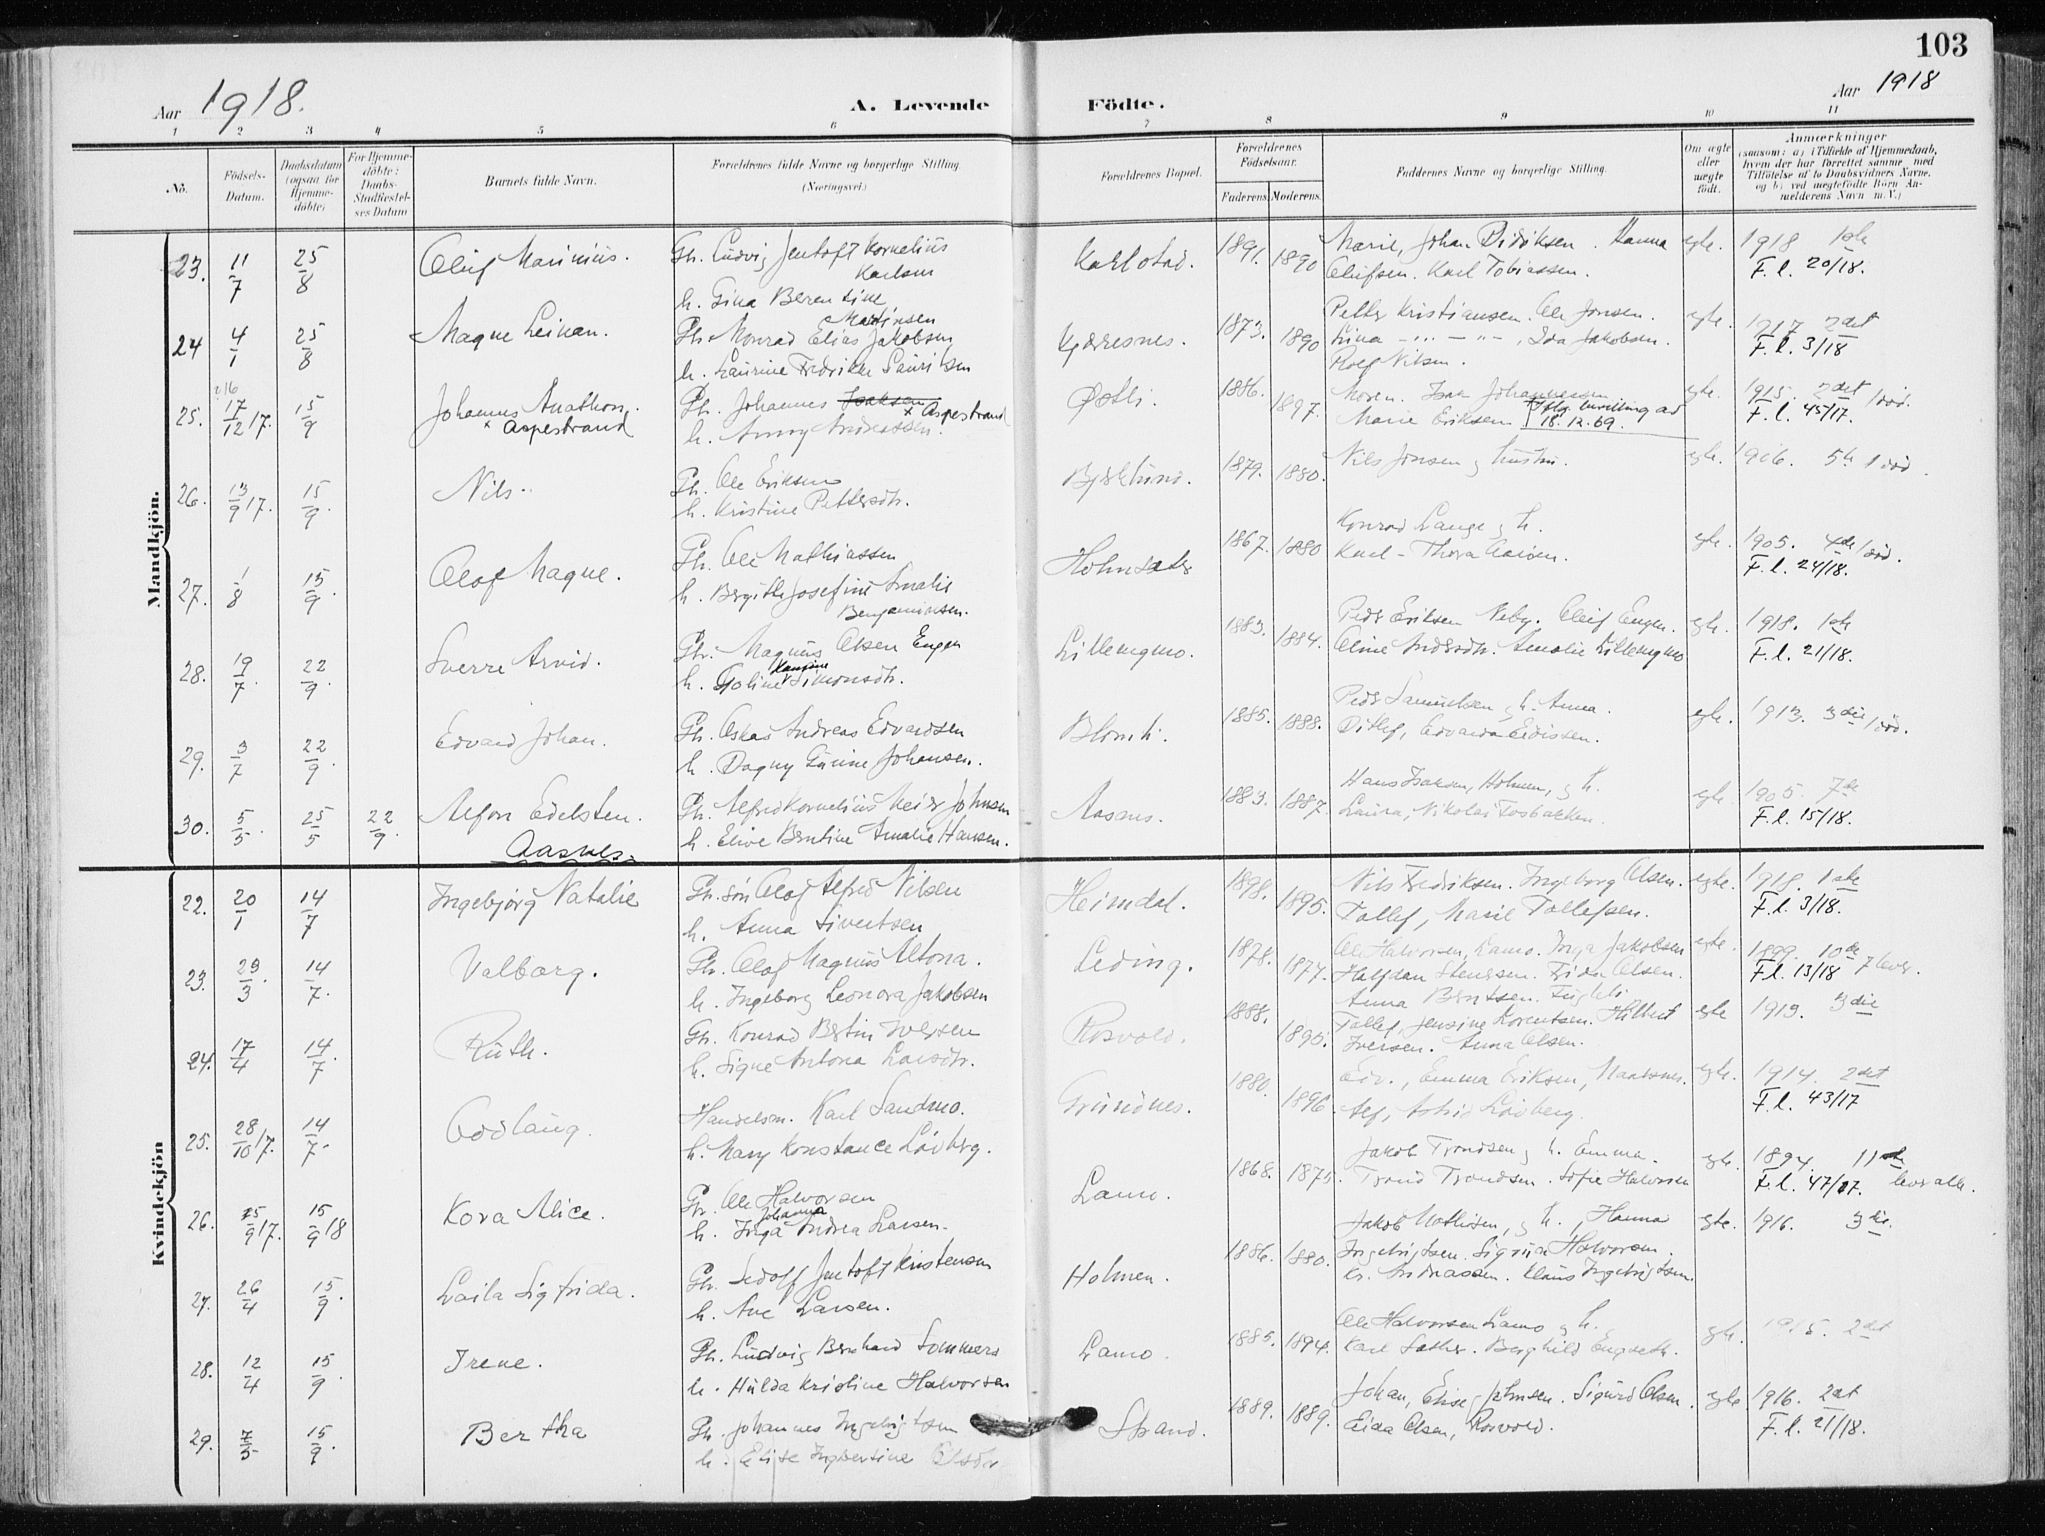 103
Aar 1918.
A. Levende Födte.
Aar 1918
1 2 3 4 5 6 7 8 9 10 11
No.
Födsels-
Datum.
Daabsdatum
(ogsaa for
Hjemme-
döbte)
For Hjemme-
döbte:
Daabs-
Stadfæstel-
ses Datum
Barnets fulde Navn.
Forældrenes fulde Navne og borgerlige Stilling.
(Næringsvei.)
Forældrenes Bopæl.
Forældrenes
Födselsaar.
Faderens. Moderens.
Faddernes Navne og borgerlige Stilling.
Om ægte
eller
uægte
födt.
Anmærkninger
(saasom: a) i Tilfælde af Hjemmedaab,
hvem der har forrettet samme, med
Tilföielse af to Daabsvidners Navne,
og b) ved uægtefödte Börn An-
melderens Navn m.V.)
Mandkjön.
23. 11/7 25/8 Oluf Marinius. Gb. Ludvig Jentoft Kornelius Karlsen
h. Gina Berentine Martinsen
Karlstad. 1891. 1890 Marie, Johan Didriksen. Hanna
Olufsen. Karl Tobiassen. egte. 1918 1ste
F.l. 20/18.
24 4/1 25/8 Magne Leinan. Gb. Monrad Elias Jakobsen
h. Laurine Fredrikke Lauritsen
Kjerresnes. 1873. 1890 Petter Kristiansen. Ole Jonsen.
Lina - " - " -, Ida Jakobsen.
Rolf Nilsen. egte. 1917 2det
F.l. 3/18
25. 17/12 17. 15/9 Johannes Anathon.
x Aspestrand
Gb. Johannes Isaksen x Aspestrand
h. Anny Andreassen.
Østli. 1886. 1897. Moren. Isak Johannessen
Marie Eriksen iflg. bevilling ad
18.12.69. egte. 1915. 2det 1 död.
F.l. 45/17.
26. 13/9 17. 15/9. Nils. Gb. Ole Eriksen
h. Kristine Pettersdtr.
Bjørklund. 1879. 1880. Nils Jonsen og hustru. egte. 1906. 5te 1 död.
27. 1/8 15/9. Olaf Magne. Gb. Ole Mathiassen
h. Bergitte Josefine Amalie
Benjaminsen.
Holmsæter 1867. 1880 Konrad Lange og h.
Karl - Thora Larsen. egte. 1905. 4de 1 död.
F.l. 24/18.
28. 19/7. 22/9. Sverre Arvid. Gb. Magnus Olsen Engen
h. Goline Hansine Simonsdtr.
Lillemgmo. 1883. 1884. Peder Eriksen Neby. Oluf Engen.
Oline Andersdtr. Amalie Lillemgmo egte. 1918. 1ste
F.l. 21/18.
29. 3/7 22/9. Edvard Johan. Gb. Oskar Andreas Edvardsen
h. Dagny Gurine Johansen.
Blomli. 1885. 1888. Peder Samuelsen og h. Anna.
Ditlef, Edvarda Eidissen. egte. 1913. 3die 1 död.
30. 5/5. 25/5 22/9. Alfon Edelsten.
Aasnes.
Gb. Alfred Kornelius Meier Johnsen
h. Elive Berntine Amalie Hansen.
Aasnes. 1883. 1887. Hans Isaksen, Holmen, og h.
Laura, Nikolai Fosbakken. egte. 1905. 7de
F.l. 15/18.
Kvindekjön
22. 20/1 14/7 Ingebjørg Natalie Gb. sön Olaf Alfred Nilsen
h. Anna Sivertsen
Heimdal. 1898. 1895. Nils Fredriksen. Ingeborg Olsen.
Tollef, Marie Tollefsen. egte. 1918. 1ste
F.l. 3/18.
23. 29/3. 14/7. Valborg. Gb. Olaf Magnus Altona.
h. Ingeborg Leonora Jakobsen
Leding. 1878. 1877. Ole Halvorsen, Lamo. Inga Jakobsen
Halfdan Stenersen. Frida Olsen. egte. 1899. 10de 7 lever.
F.l. 13/18
24. 17/4 14/7. Ruth. Gb. Konrad Bertin Iversen
h. Signe Antona Larsdtr.
Rosvold. 1888. 1890. Anna Berntsen. Fugleli.
Tollef, Jensine Lorentsen. Hilbert
Iversen. Anna Olsen. egte 1913. 3die
25. 28/10 17. 14/7. Godlaug. Handelsm. Karl Sandmo.
h. Mary Konstance Løvberg.
Grundnes. 1880. 1896. Edv., Emma Eriksen,
Alf, Astrid Løvberg. egte. 1914. 2det
F.l. 43/17
26. 25/9 17. 15/9 18 Kora Alice. Gb. Ole Halvorsen
h. Inga Johanna Andrea Larsen.
Lamo. 1868. 1875. Jakob Trondsen og h. Emma.
Trond Trondsen. Sofie Halvorsen egte. 1894. 11te lever alle.
F.l. 47/17.
27. 26/4 15/9. Laila Sigfrida. Gb. Sedolf Jentoft Kristensen
h. Ane Larsen.
Holmen. 1886. 1880. Jakob Mathisen, og h., Hanna
Ingebrigtsen. Sigrun Halvorsen.
Kr. Andreassen. Klaus Ingebrigtsen. egte. 1916. 3die.
28. 12/4 15/9. Irene. Gb. Ludvig Bernhard Sommero
h. Hulda Kristine Halvorsen
Lamo. 1885. 1894. Ole Halvorsen Lamo og h.
Karl Sæther. Berghild Engseth. egte. 1915. 2det
29. 7/5 15/9. Bertha Gb. Johannes Ingebrigtsen
h. Elise Ingbertine Olsdtr
Strand. 1889. 1889. Johan, Elise Johnsen. Sigurd Olsen.
Eida Olsen, Rosvold. egte 1916. 2det
F.l. 21/18.